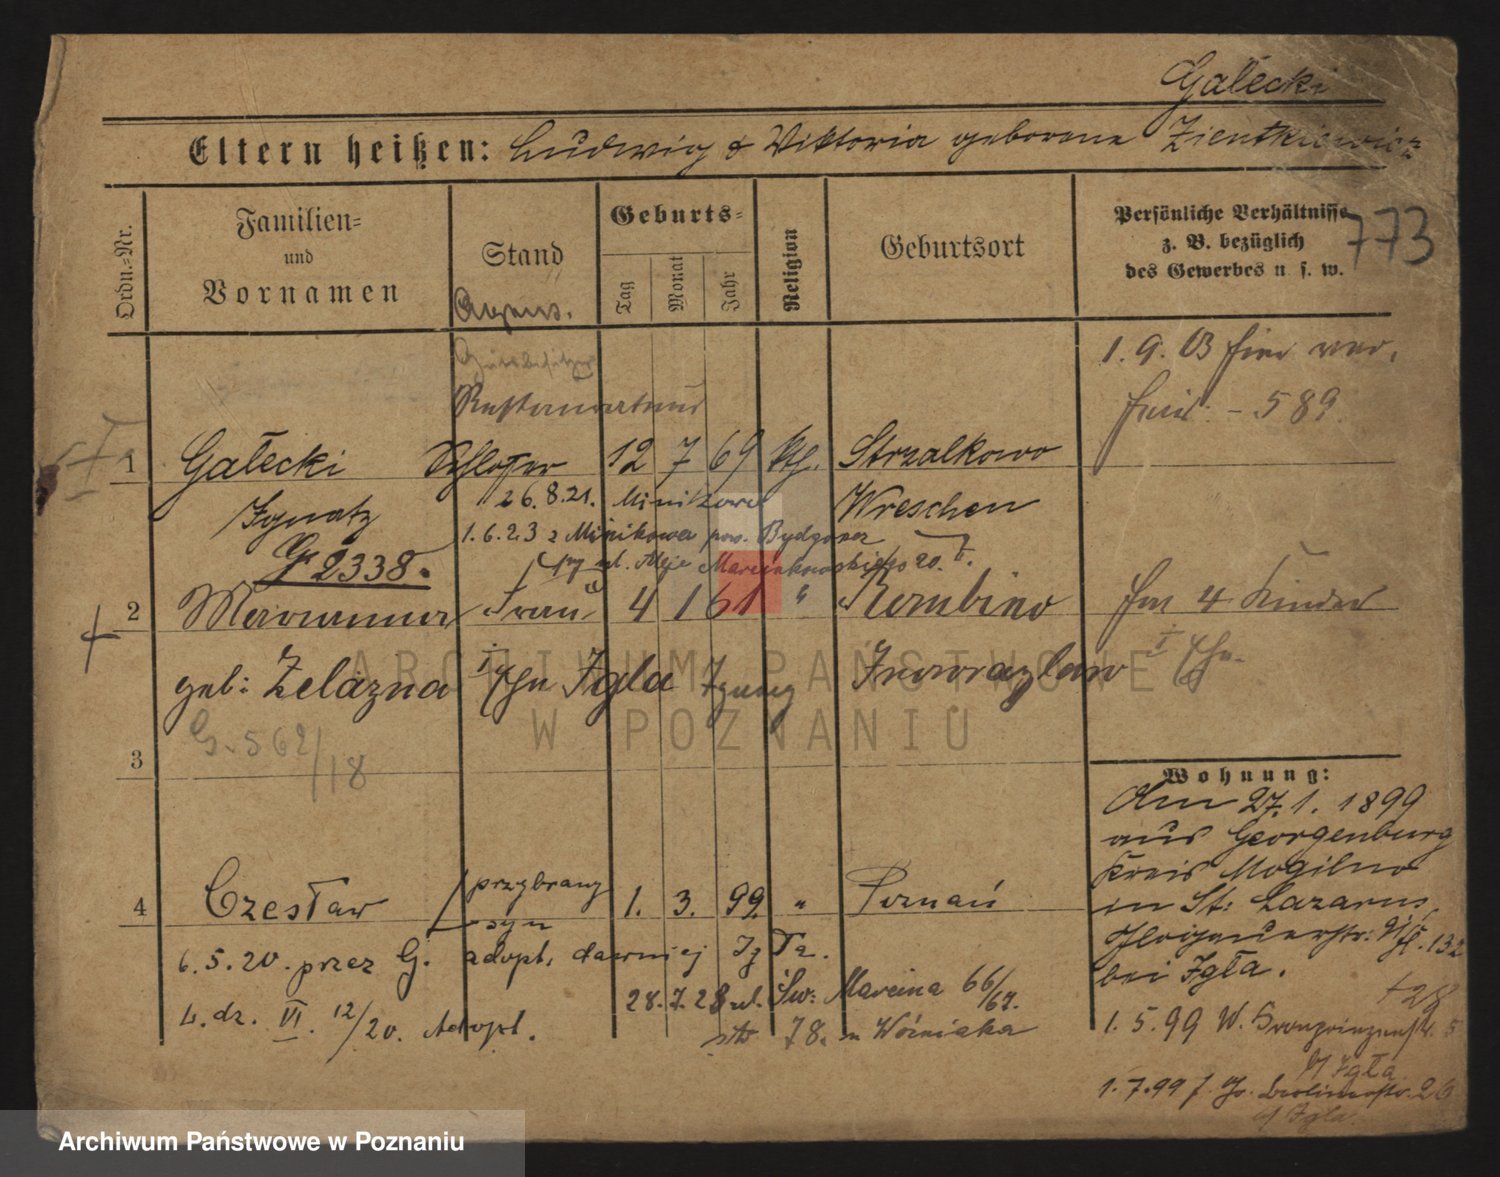 Gałecki
Eltern heißen: Ludwig & Viktoria geborene Zientkiewicz
Ordn.-Nr.
Familien-
und
Vornamen
Stand
Geburts-
Tag
Monat
Jahr
Religion
Geburtsort
Persönliche Verhältnisse
z. B. bezüglich
des Gewerbes u. s. w.
773
1. 9. 03
- 589.
1 Gałecki Schlosser 12 7 69 kth. Strzalkowo
Ignatz 26.8.21. Minikowo Wreschen
1.6.23 z Minikowa pow. Bydgoszcz
G 2338. ul. Aleje Marcinkowskiego 20.
2 Marianna Frau 4 1 61 " Rombino
4 Kinder
geb: Żelazna I Ehe Igla Ignacy Inowrazlaw
I Ehe
G. 562/18
3
Wohnung:
Am 27.1. 1899
aus Georgenburg
Kreis Mogilno
in St: Lazarus,
132
bei Igła.
4 Czesław przybrany syn 1. 3. 99. " Poznań
6.5.20. przez G. adopt. dawniej Igła.
28.7.28 ul. Św: Marcina 66/67.
L. dz. VI. 12/20. Adopt. 78. u Woźniaka
+28
1.5.99 W. Kronprinzenstr. 5
b/ Igła
1.7.99 26
b/ Igla.
ARCHIWUM PAŃSTWOWE
W POZNANIU
Archiwum Państwowe w Poznaniu